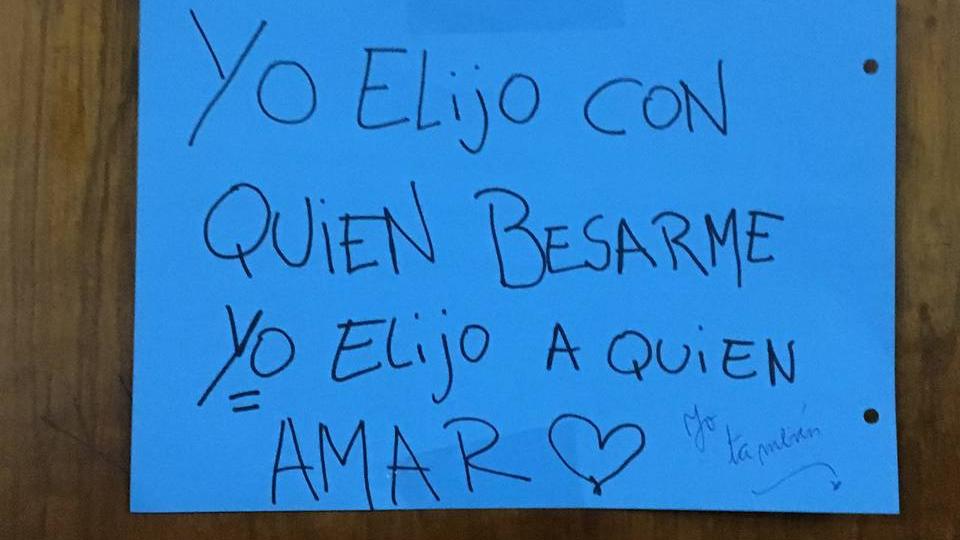 YO ELijO CON
QUiEN BESARME
YO ELijO A QUiEN
AMAR
Yo
también